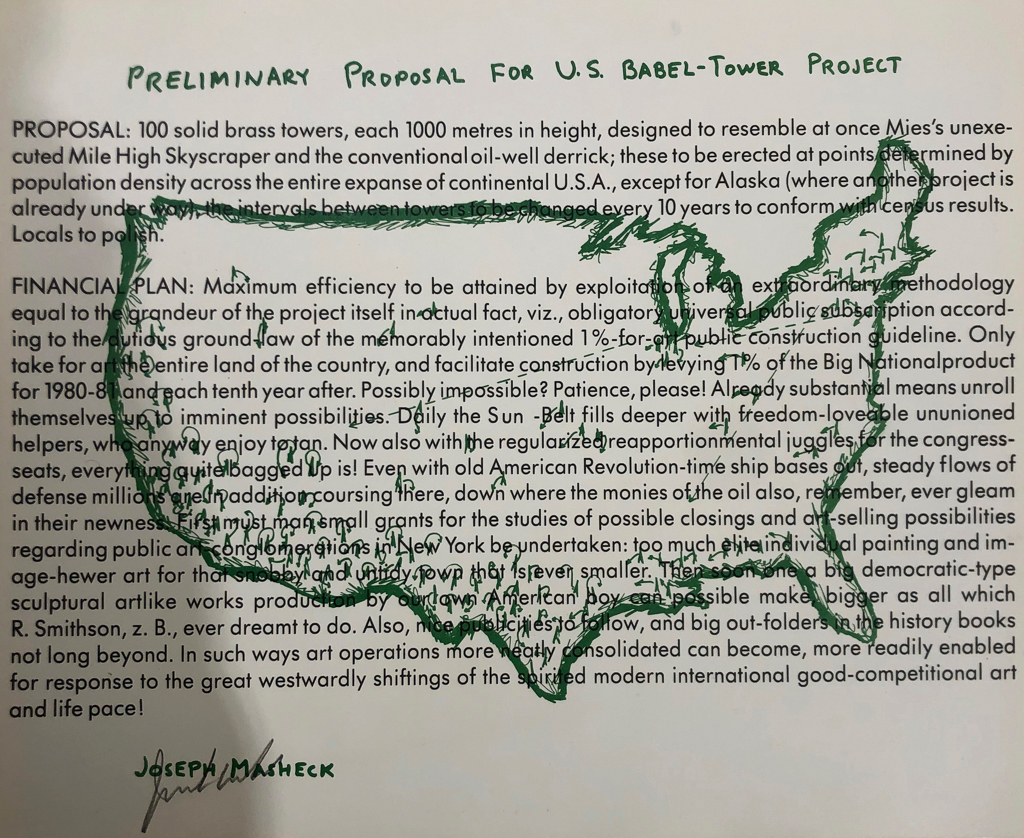 PRELIMINARY PROPOSAL FOR U.S. BABEL-TOWER PROJECT
PROPOSAL: 100 solid brass towers, each 1000 metres in height, designed to resemble at once Mies's unexe-
cuted Mile High Skyscraper and the conventional oil-well derrick; these to be erected at points determined by
population density across the entire expanse of continental U.S.A., except for Alaska (where another project is
already under way), the intervals between towers to be changed every 10 years to conform with census results.
Locals to polish.
FINANCIAL PLAN: Maximum efficiency to be attained by exploitation of an extraordinary methodology
equal to the grandeur of the project itself in actual fact, viz., obligatory universal public subscription accord-
ing to the dutious ground-law of the memorably intentioned 1%-for-art public construction guideline. Only
take for art the entire land of the country, and facilitate construction by levying 1% of the Big Nationalproduct
for 1980-81 and each tenth year after. Possibly impossible? Patience, please! Already substantial means unroll
themselves up to imminent possibilities. Daily the Sun-Belt fills deeper with freedom-loveable ununioned
helpers, who anyway enjoy to tan. Now also with the regularized reapportionmental juggles for the congress-
seats, everything quite bagged up is! Even with old American Revolution-time ship bases out, steady flows of
defense millions are in addition coursing there, down where the monies of the oil also, remember, ever gleam
in their newness. First must man small grants for the studies of possible closings and art-selling possibilities
regarding public art conglomerations in New York be undertaken: too much elite individual painting and im-
age-hewer art for that snobby and untidy town that is even smaller. Then soon one a big democratic-type
sculptural artlike works production by our own American boy can possible make, bigger as all which
R. Smithson, z. B., ever dreamt to do. Also, nice publicities to follow, and big out-folders in the history books
not long beyond. In such ways art operations more neatly consolidated can become, more readily enabled
for response to the great westwardly shiftings of the spirited modern international good-competitional art
and life pace!
JOSEPH MASHECK